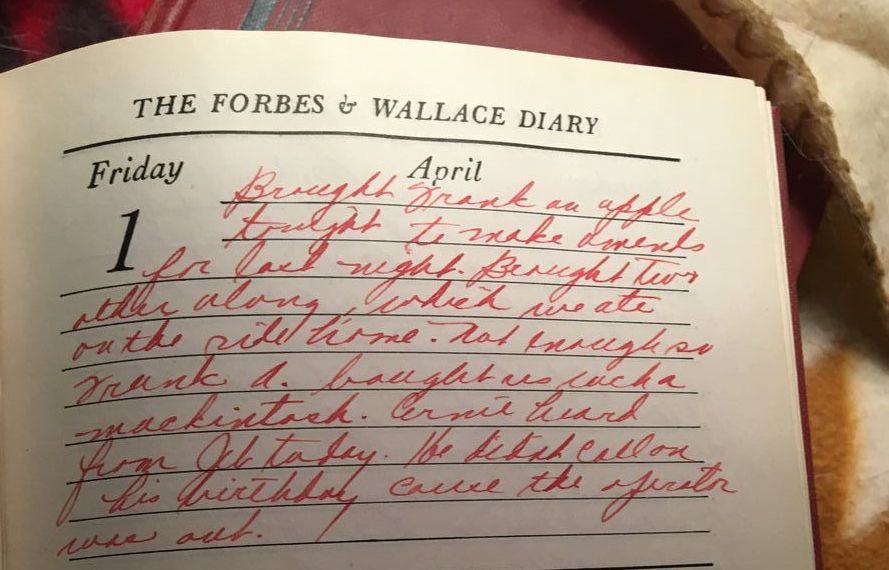 THE FORBES & WALLACE DIARY
Friday April
1 Brought Frank an apple
tonight to make amends
for last night. Brought two
other along, which we ate
on the ride home. Not enough so
Frank A. bought us each a
mackintosh. Ernie heard
from Jeb today. He didnt call on
his birthday cause the operator
was out.